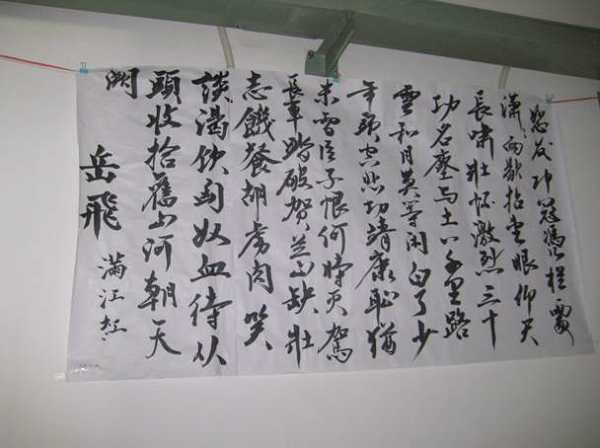 怒发冲冠馮栏處
瀟瀟雨歇抬望眼仰天
長嘯壮怀激烈三十
功名塵与土八千里路
雲和月莫等闲白了少
年頭空悲切靖康恥猶
未雪臣子恨何時灭駕
長車踏破賀兰山缺壮
志饑餐胡虜肉笑
談渴饮匈奴血待从
頭收拾舊山河朝天
闕
岳飛
滿江紅